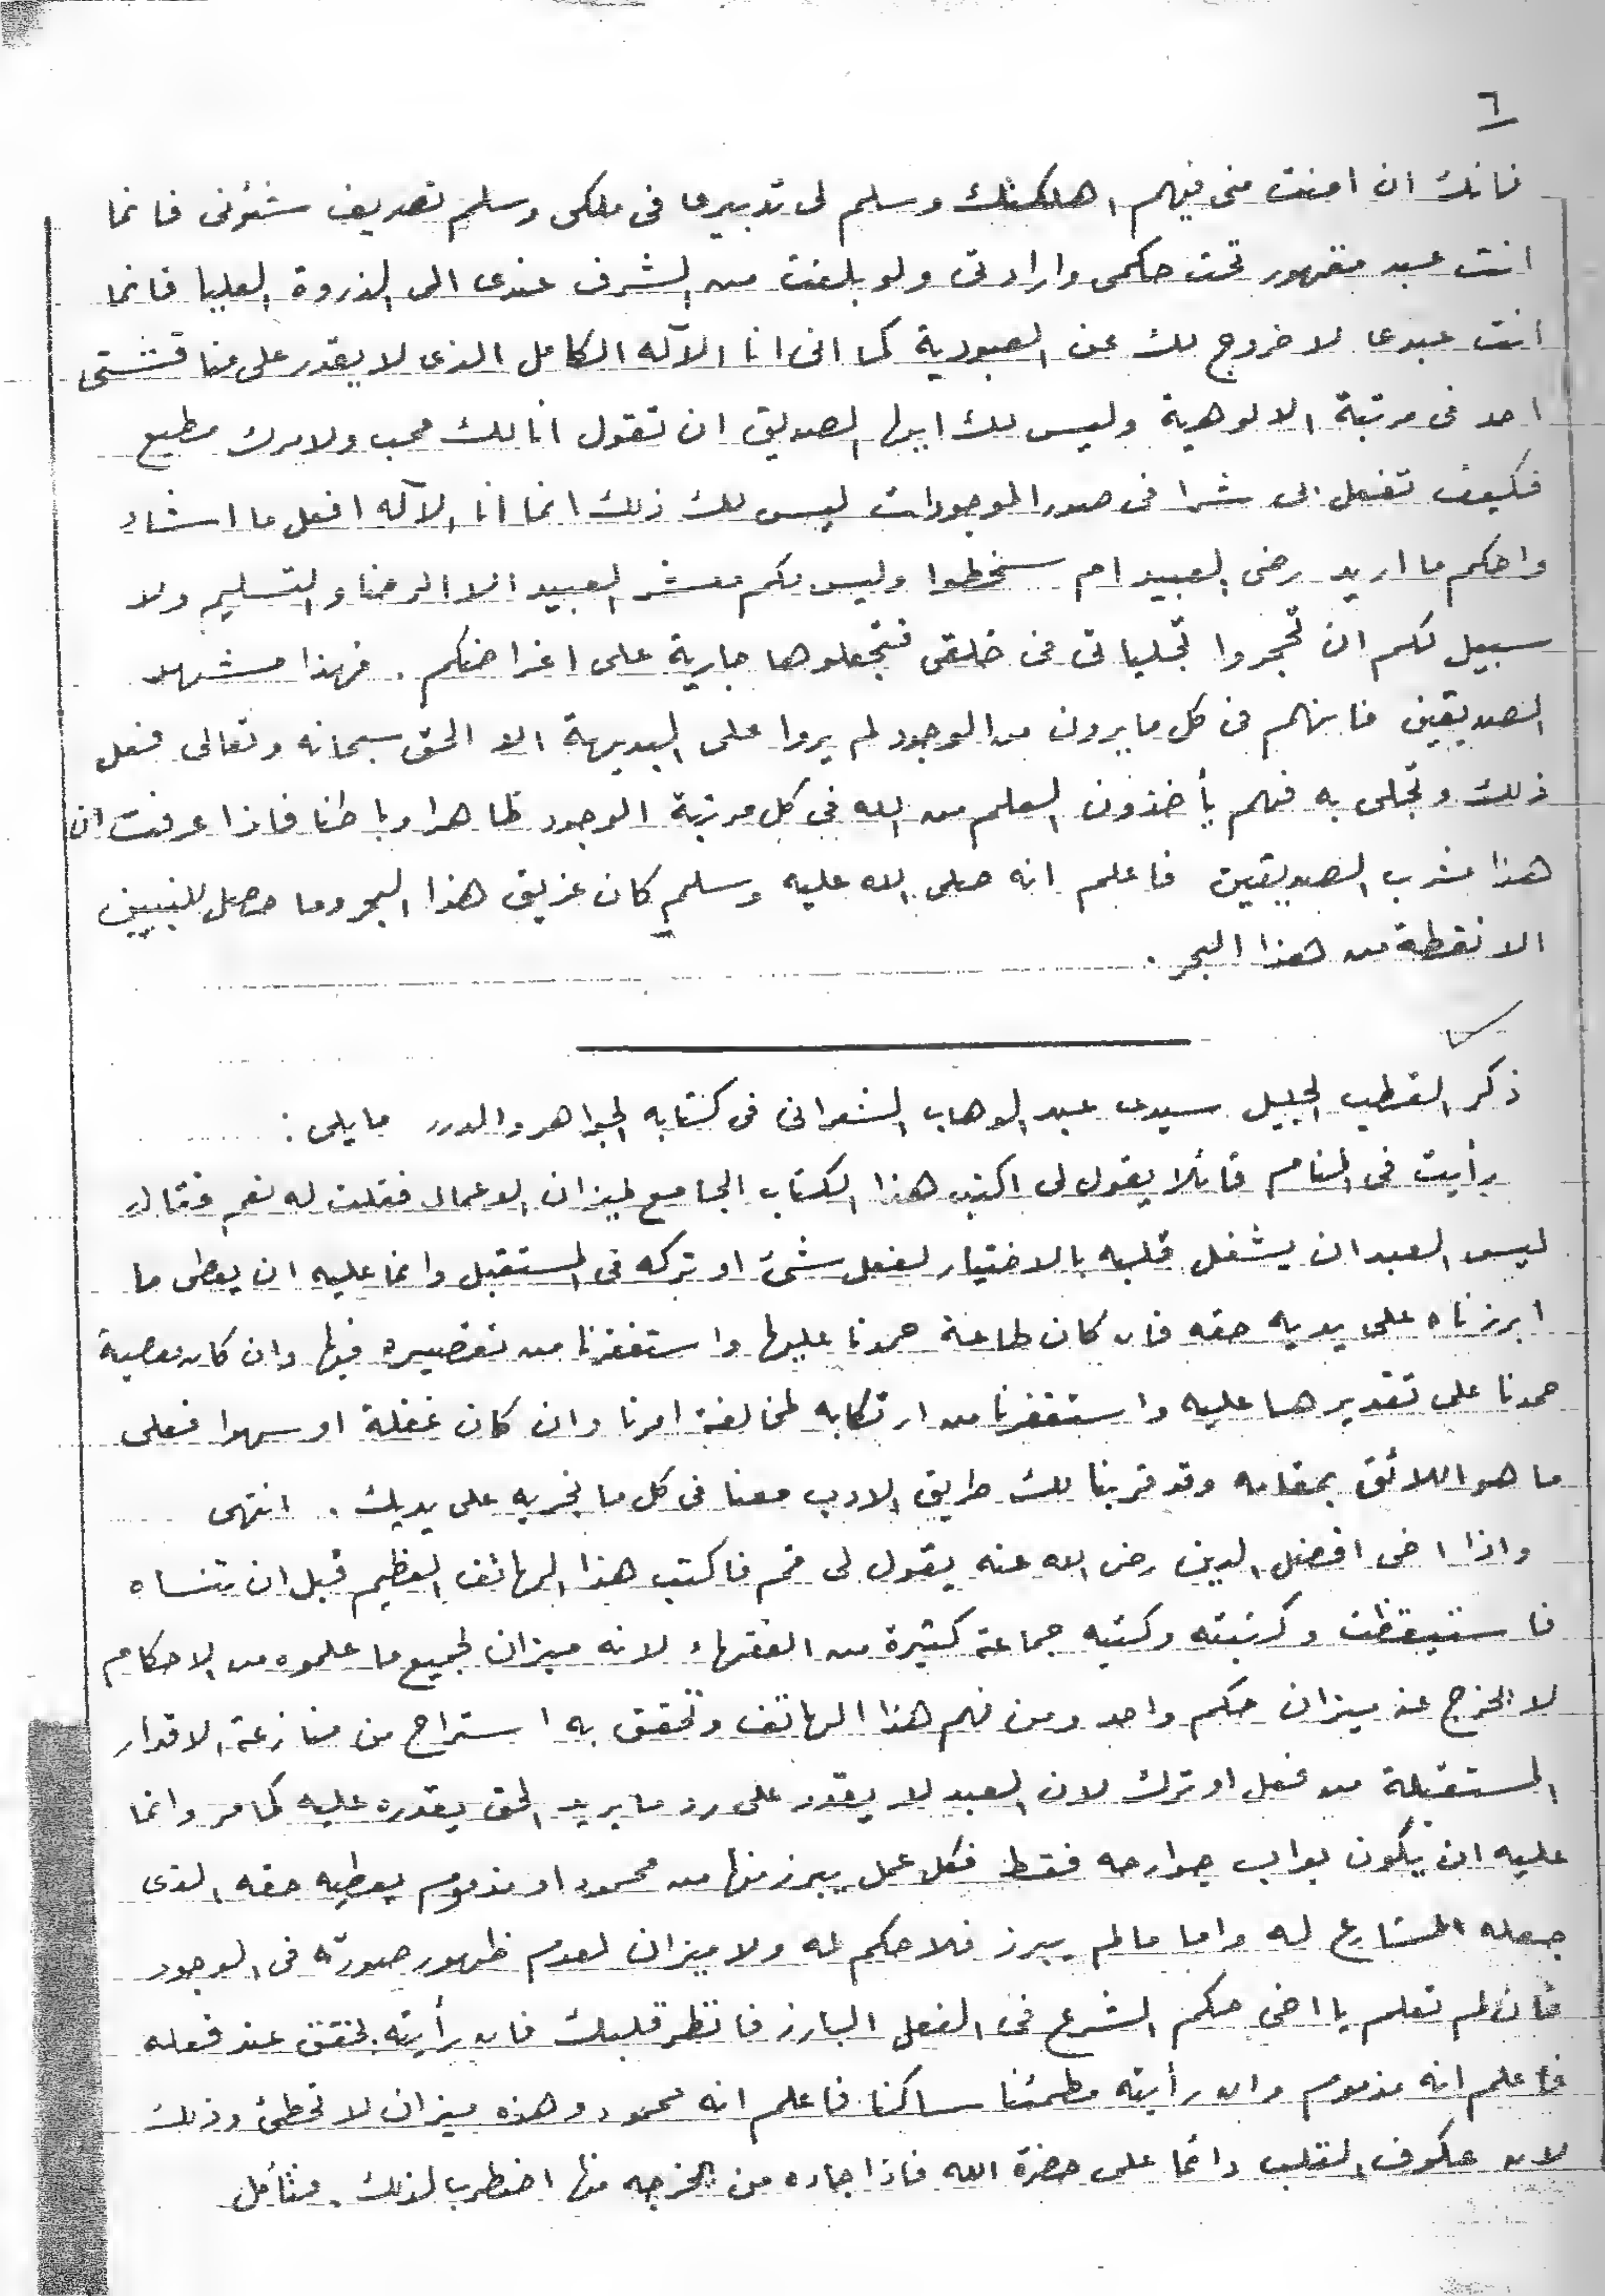 ٦
فانك ان امنت مني فيهم اهلكتك وسلم لى تدبيرى فى ملكى وسلم تصريف شئونى فانما
انت عبد مقهور تحت حكمى وارادتى ولو بلغت من الشرف عندى الى الذروة العليا فانما
انت عبدى لا خروج لك عن العبودية كما انى انا الآله الكامل الذى لا يقدر على مناقشتى
احد فى مرتبة الالوهية وليس لك ايها الصديق ان تقول انا لك محب ولامرك مطيع
فكيف تفعل الى شرا فى صور الموجودات ليس لك ذلك انما انا الآله افعل ما اشاء
واحكم ما اريد رضى العبيد ام سخطوا وليس لكم معشر العبيد الا الرضا والتسليم ولا
سبيل لكم ان تحجروا تجلياتى فى خلقى فتجعلوها جارية على اغراضكم . فهذا مشهد
الصديقين فانهم فى كل ما يرون من الوجود لم يروا على البديهة الا الحق سبحانه وتعالى فعل
ذلك وتجلى به فهم يأخذون العلم من الله فى كل مرتبة الوجود ظاهرا وباطنا فاذا عرفت ان
هذا مشرب الصديقين فاعلم انه صلى الله عليه وسلم كان غريق هذا البحر وما حصل للنبيين
الا نقطة من هذا البحر .
ذكر القطب الجليل سيدى عبد الوهاب الشعرانى فى كتابه الجواهر والدرر مايلى :
رأيت فى المنام قائلا يقول لى اكتب هذا الكتاب الجامع لميزان الاعمال فقلت له نعم فقال
ليس العبد ان يشغل قلبه بالاختيار لفعل شئ او تركه فى المستقبل وانما عليه ان يعطى ما
ابرزناه على يديه حقه فان كان طاعة حمدنا عليها واستغفرنا من تقصيره فيها وان كان معصية
حمدنا على تقديرها عليه واستغفرنا من ارتكابه لمخالفة امرنا وان كان غفلة او سهوا فعلى
ما هو اللائق بمقامه وقد قربنا لك طريق الادب معنا فى كل ما نجريه على يديك . انتهى
واذا اخى افضل الدين رضى الله عنه يقول لى قم فاكتب هذا الهاتف العظيم قبل ان تنساه
فاستيقظت وكتبته وكتبه جماعة كثيرة من الفقهاء لانه ميزان لجميع ما علموه من الاحكام
لا يخرج عنه ميزان حكم واحد ومن فهم هذا الهاتف وتحقق به استراح من منازعة الاقدار
المستقبلة من فعل او ترك لان العبد لا يقدر على رد ما يريد الحق يقدره عليه كما مر وانما
عليه ان يكون بواب جوارحه فقط فكل عمل يبرز منها من محمود او مذموم يعطيه حقه الذى
جعله الشارع له واما مالم يبرز فلا حكم له ولا ميزان لعدم ظهور صورته فى الوجود
فان لم تعلم يا اخى حكم الشرع فى الفعل البارز فانظر قلبك فان رأيته يخفق عند فعله
فاعلم انه مذموم وان رأيته مطمئنا ساكنا فاعلم انه محمود وهذه ميزان لا تخطئ وذلك
لان عكوف القلب دائما على حضرة الله فاذا جاءه من يخرجه منها اضطرب لذلك . فتأمل